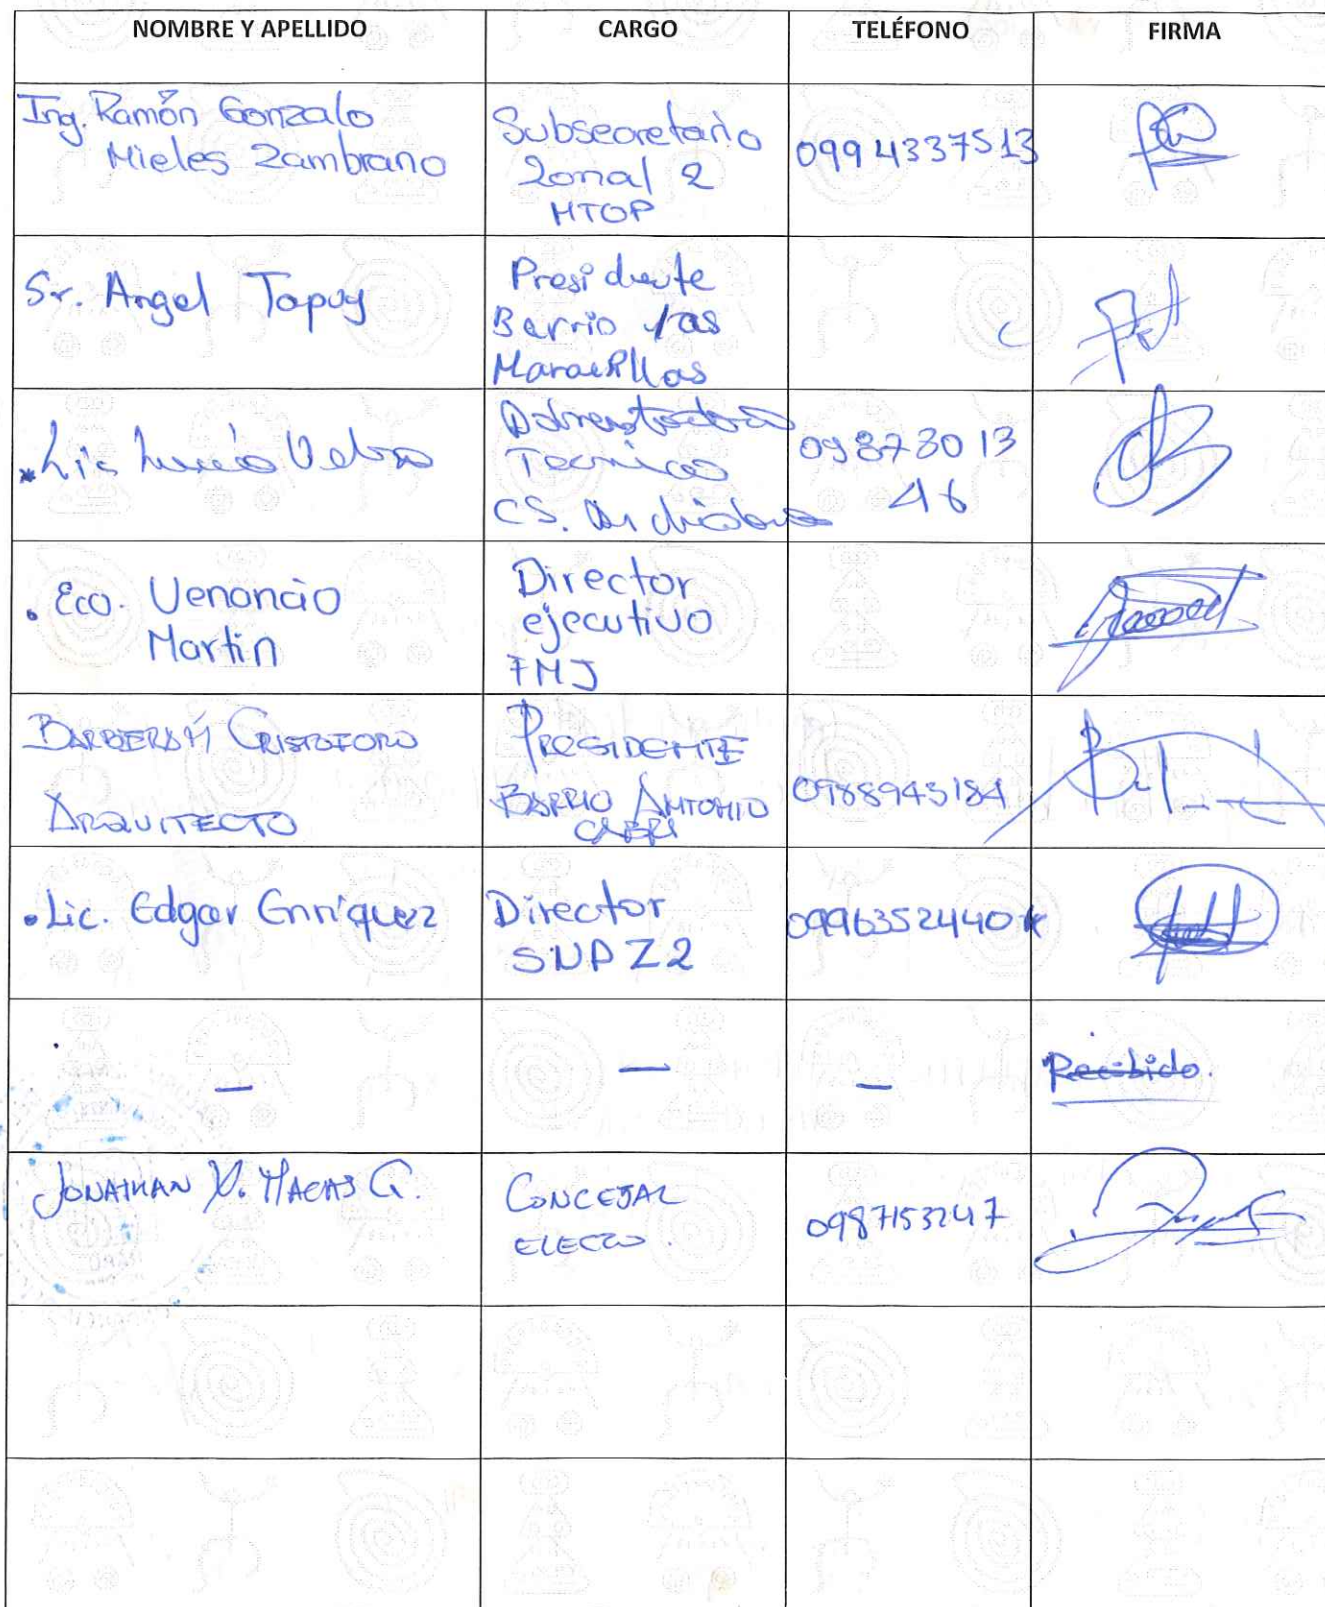 NOMBRE Y APELLIDO CARGO TELÉFONO FIRMA
Ing. Ramón Gonzalo
Mieles Zambrano
Subsecretario
Zonal 2
MTOP
0994337513
Sr. Angel Tapuy
Presidente
Barrio las
Maravillas
Lic
Tecnica
CS.
09873013
46
Eco. Venancio
Martin
Director
ejecutivo
FMJ
BARBERAN CRISTOFORO
ARQUITECTO
PRESIDENTE
BARRIO ANTONIO
0988943184
Lic. Edgar Enriquez
Director
SNP Z2
0996352440
— — — Recibido.
JONATHAN V. MACAS G.
CONCEJAL
ELECTO.
0987153247